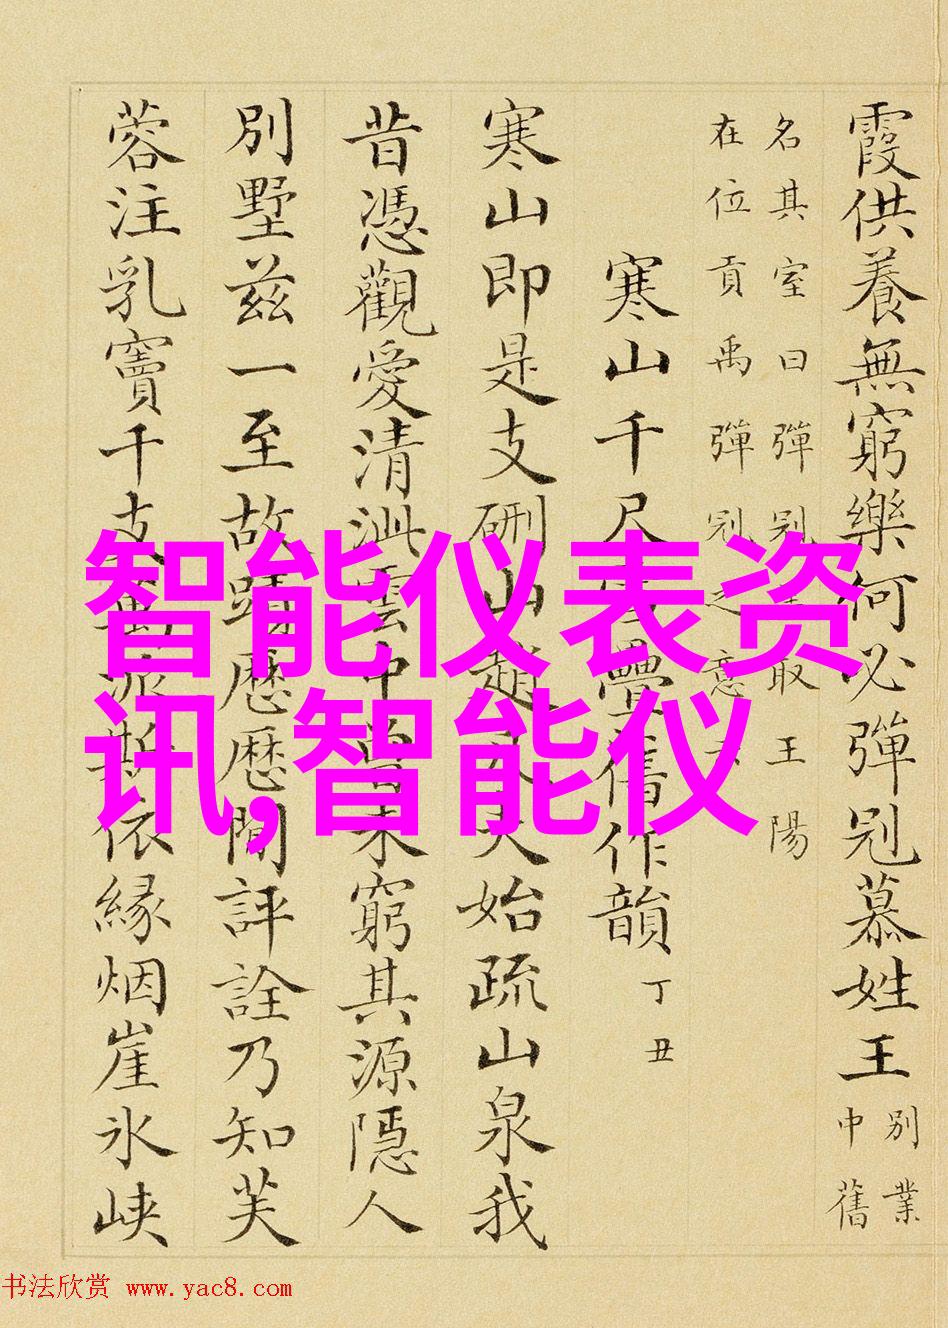 霞供養無窮樂何必彈冠慕姓王
別業
中舊
名其室曰彈冠 取王陽
在位貢禹彈冠之意
寒山千尺 疊舊作韻
丁丑
寒山即是支硎山趙 大始疏山泉我
昔憑觀愛清泚雲中 未窮其源隱人
別墅茲一至故蹟歷歷閒評詮乃知芙
蓉注乳竇千支 派 依緣烟崖氷峽
智能仪表资
讯,智能仪
书法欣赏 www.yac8.com